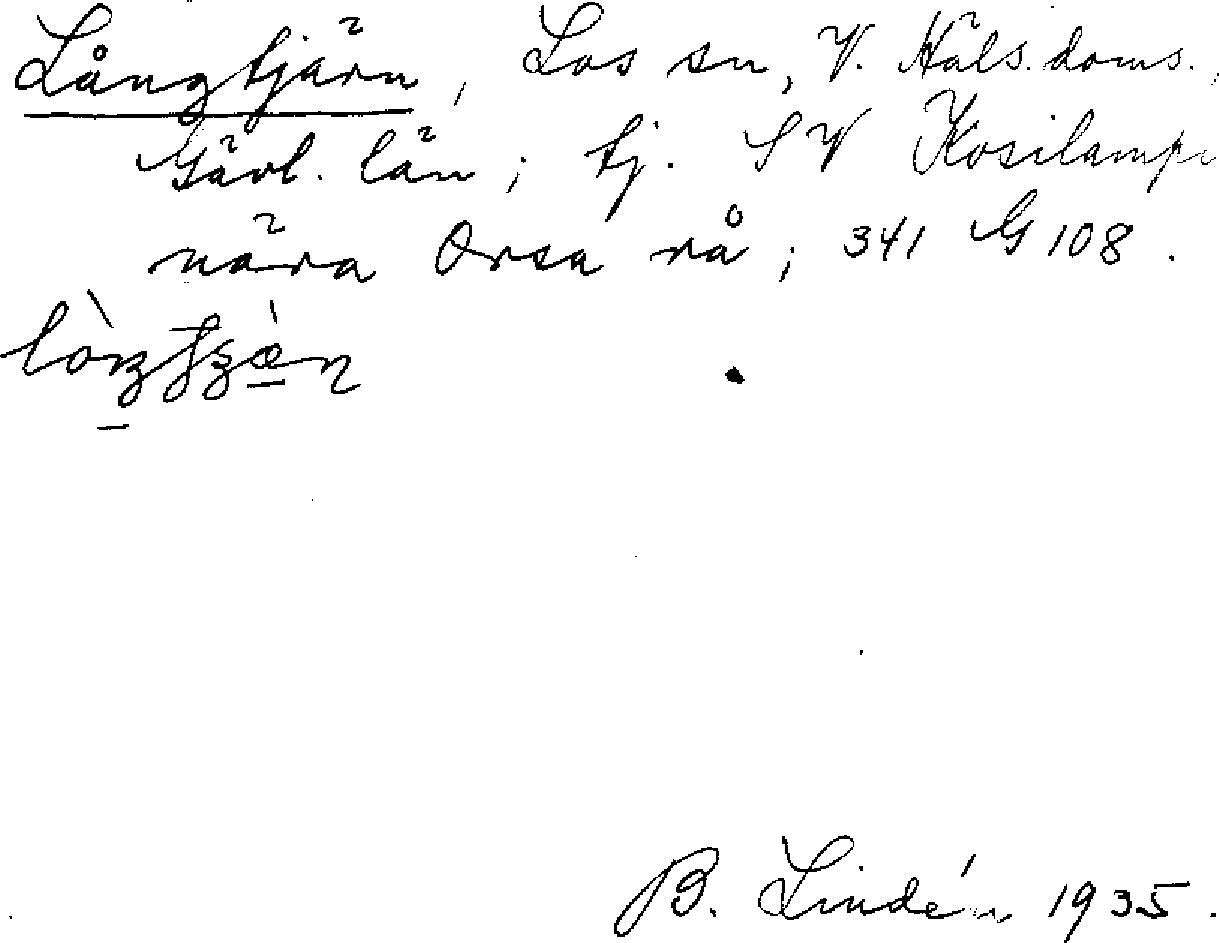 Långtjärn, Los sn, V. Häls. doms.,
Gävl. län; tj. SV Kosilamp
nära Orsa rå; 341 G 108.
B. Lindén 1935.